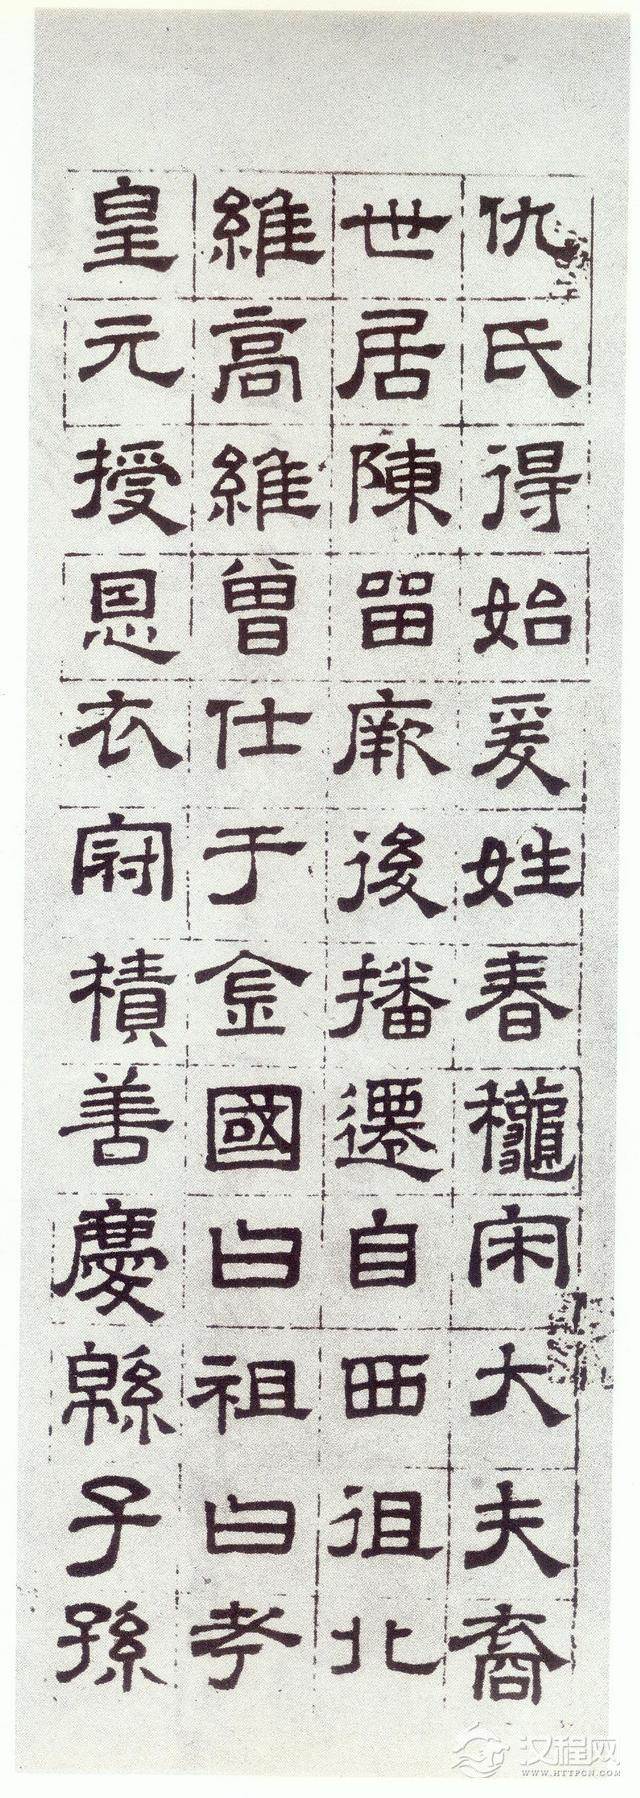 仇氏得始爰姓春穐宋大夫裔
世居陳留厥後播遷自西徂北
維高維曾仕于金國曰祖曰考
皇元授恩衣冠積善慶緜子孫
汉程网
WWW.HTTPCN.COM